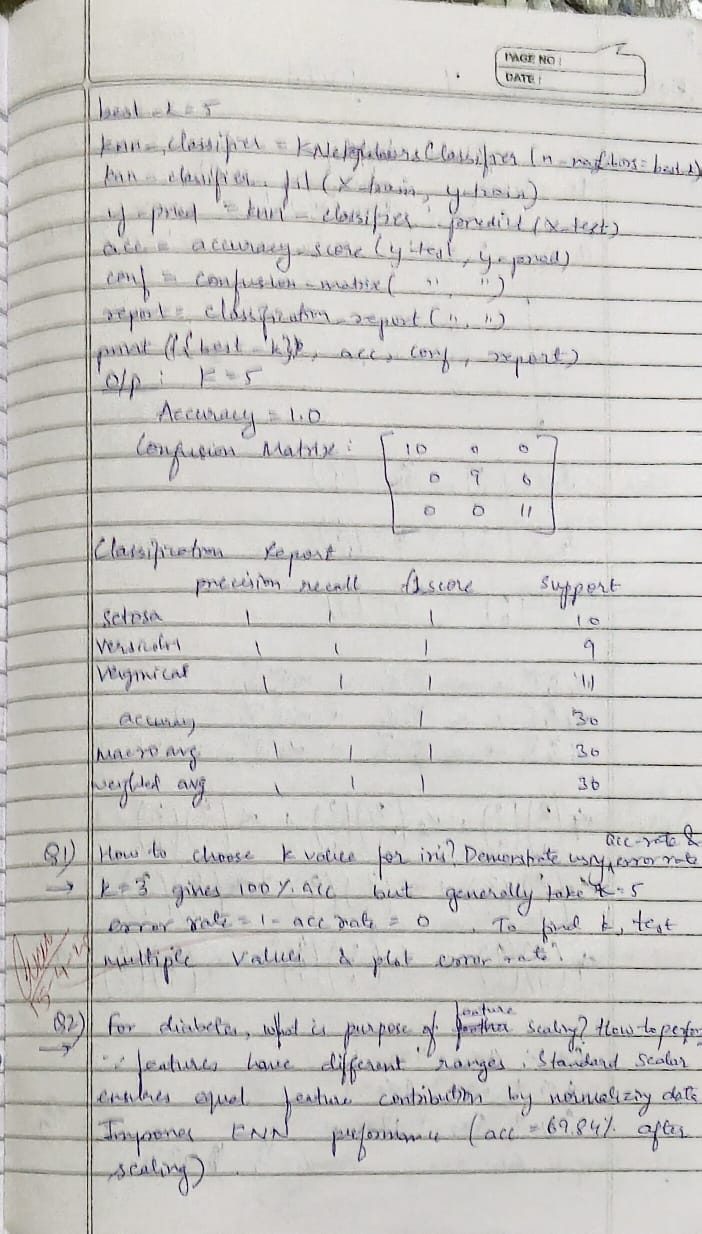 PAGE NO:
DATE:
best_k = 5
knn_classifier = KNeighbours Classifier (n_neighbors = best_k)
knn_classifier.fit (X_train, y_train)
y_pred = knn_classifier.predict (X_test)
acc = accuracy_score (y_test, y_pred)
conf = confusion_matrix ( " , " )
report = classification_report ( " , " )
print (f{best_k}k, acc, conf, report)
O/p : k = 5
Accuracy = 1.0
Confusion Matrix :
10 0 0
0 9 0
0 0 11
Classification Report :
precision recall f1score support
setosa 1 1 1 10
1 1 1 9
1 1 1 11
accuracy 1 30
macro avg 1 1 1 30
weighted avg 1 1 1 30
acc-rate &
Q1) How to choose k value for iris? Demonstrate using error rate
→ k = 3 gives 100% acc but generally take k = 5
error rate = 1 - acc rate = 0 . To find k, test
multiple values & plot error rate.
feature
Q2) For diabetes, what is purpose of scaling? How to perfor
→ ∵ features have different ranges. Standard Scalar
ensures equal feature contribution by normalizing data
Improves KNN (acc = 69.84% after
scaling).